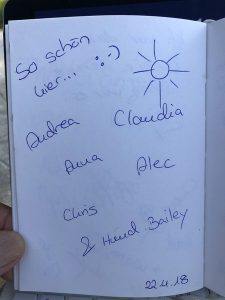 So schön
hier... :-)
Andrea
Claudia
Anna
Alec
Chris
& Hund Bailey
22.4.18